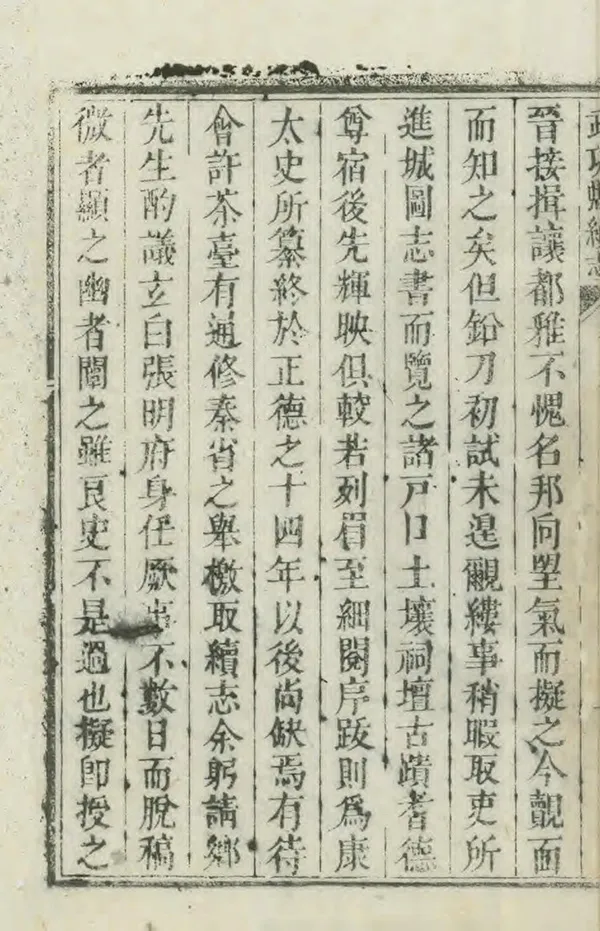 武功縣續志
晉接揖讓都雅不愧名邦向朢氣而擬之今覿面
而知之矣但鉛刀初試未遑覼縷事稍暇取吏所
進城圖志書而覽之諸戸口土壤祠壇古蹟耆德
尊宿後先輝映俱較若列眉至細閱序跋則爲康
太史所纂終於正德之十四年以後尚缺焉有待
會許荼臺有通修秦省之舉檄取續志余躬請鄉
先生酌議玄白張明府身任厥事不數日而脫稿
微者顯之幽者闡之雖良史不是過也擬卽授之